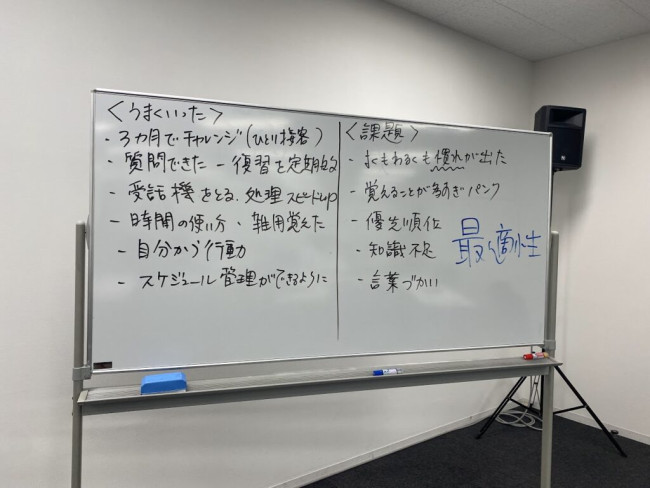 <うまくいった>
・3カ月でチャレンジ(ひとり接客)
・質問できた - 復習を定期的
- 受話機をとる、処理スピードup
- 時間の使い方・雑用覚えた
- 自分から行動
- スケジュール管理ができるように
<課題>
・よくもわるくも慣れが出た
・覚えることが多すぎパンク
- 優先順位
- 知識不足
- 言葉づかい
最適性